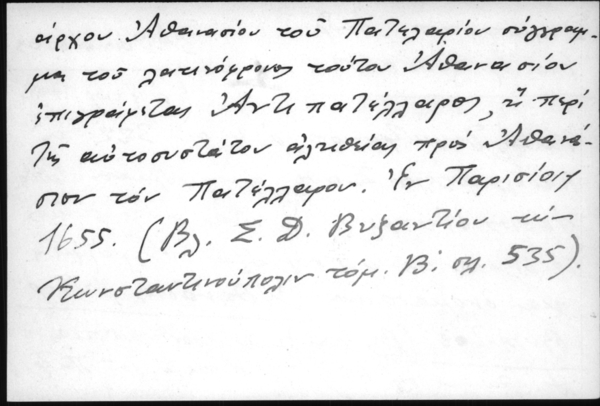 άρχου Ἀθανασίου τοῦ Πατελαρίου σύγγραμ-
μα τοῦ λατινόφρονος τούτου Ἀθανασίου
ἐπιγράφεται Ἀντιπατέλλαρος, ἢ περὶ
τῆς αὐτοσυστάτου ἀληθείας πρὸς Ἀθανά-
σιον τὸν Πατέλλαρον. Ἐν Παρισίοις
1655. (Βλ. Σ. Δ. Βυζαντίου τὴν
Κωνσταντινούπολιν τόμ. Β'. σλ. 535).